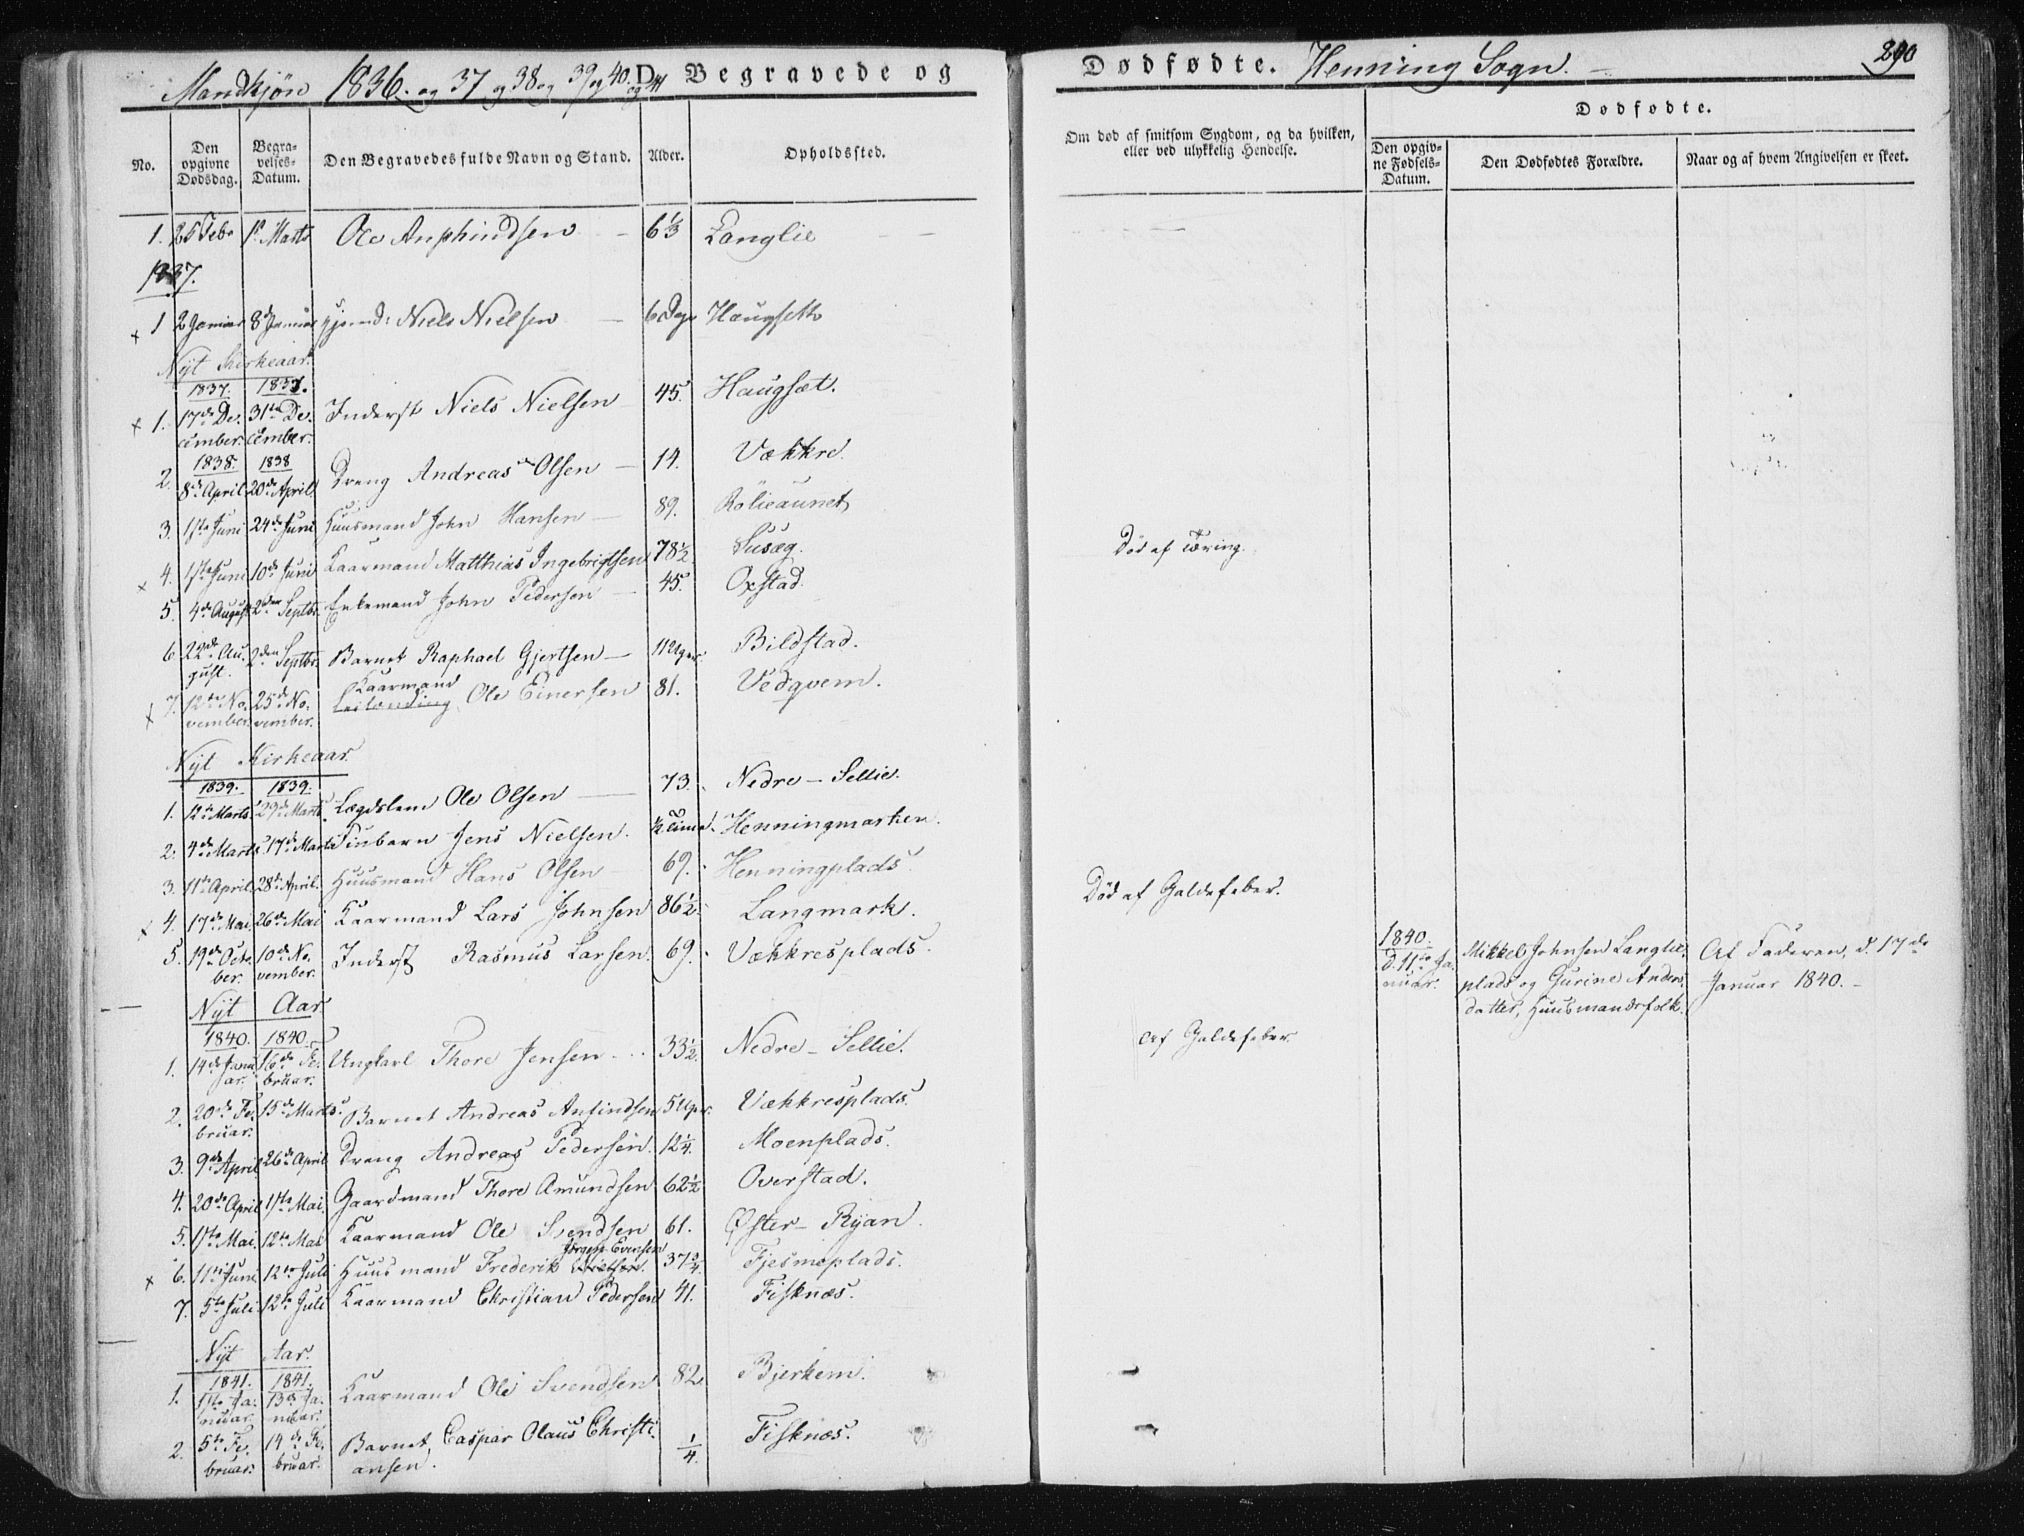 Mandkjøn 1836. og 37 og 38 og 39 og 40. og 41 D. Begravede og
Dødfødte. Henning Sogn.
290
No.
Den opgivne Dødsdag.
Begravelses-Datum.
Den Begravedes fulde Navn og Stand.
Alder.
Opholdssted.
Om død af smitsom Sygdom, og da hvilken, eller ved ulykkelig Hendelse.
Dødfødte.
Den opgivne Fødsels-Datum.
Den Dødfødtes Forældre.
Naar og af hvem Angivelsen er skeet.
1. 25 Febr 1ste Marts Ole Anphindsen 6 1/3 Langlie
1837.
x 1 2 Januar 8de Januar hjemd: Niels Nielsen 6 Dage Haugseth
Nyt Kirkeaar.
1837. 1837.
x 1. 17de December. 31te December. Inderst Niels Nielsen 45. Haugsæt.
1838. 1838
2. 8de April 20de April Dreng Andreas Olsen 14. Vækkre.
3. 1ste Juni 24de Juni Huusmand John Hansen 89. Rölieaunet
Død af Tæring.
x 4. 1ste Juni 10de Juni Kaarmand Matthias Ingebrigtsen 78 1/2 Susæg.
5. 4de August 2den Septbr. Enkemand John Pedersen 45. Oxstad.
6. 22de August. 2den Septbr. Barnet Raphael Gjertsen 11 Uger. Bildstad.
x 7. 12te November. 25de November. Kaarmand Leilænding Ole Einersen 81. Vedqvem.
Nyt Kirkeaar.
1839. 1839.
1. 12te Marts. 29de Marts. Lægdslem Ole Olsen 73. Nedre-Sellie.
2. 4de Marts. 17de Marts Tiubarn Jens Nielsen. 1/2 Time. Henningmarken.
3. 11te April. 28de April. Huusmand Hans Olsen 69. Henningplads.
Død af Galdefeber.
x 4. 17de Mai. 26de Mai Kaarmand Lars Johnsen 86 1/2. Langmark.
5. 19de October. 10de November. Inderst Rasmus Larsen. 69. Vækkresplads.
1840.
d. 11te Januar. Mikkel Johnsen Langlieplads og Gurine Andersdatter, Huusmandsfolk. Af Faderen, d. 17de Januar 1840.
Nyt Aar.
1840. 1840.
1. 14de Januar. 16de Februar. Ungkarl Thore Jensen 33 1/2. Nedre-Sellie.
Af Galdefeber.
2. 20de Februar. 15de Marts. Barnet Andreas Anfindsen 5 Uger. Vækkresplads.
3. 9de April 26de April Dreng Andreas Pedersen. 12 1/4. Moenplads.
4. 20de April 1ste Mai. Gaardmand Thore Amundsen 62 1/2 Overstad.
5. 1ste Mai. 12te Mai Kaarmand Ole Svendsen 61. Øster-Ryan.
x 6. 11te Juni 12te Juli Huusmand Frederik Jørgen Evensen 37 3/4. Fjesmeplads.
7. 5te Juli. 12te Juli Kaarmand Christian Pedersen 41. Fisknæs.
Nyt Aar.
1841. 1841.
1. 1ste Januar. 13de Januar. Kaarmand Ole Svendsen 82. Bjerkem.
2. 5te Februar. 14de Februar. Barnet, Caspar Olaus Christiansen. 1/4. Fisknæs.